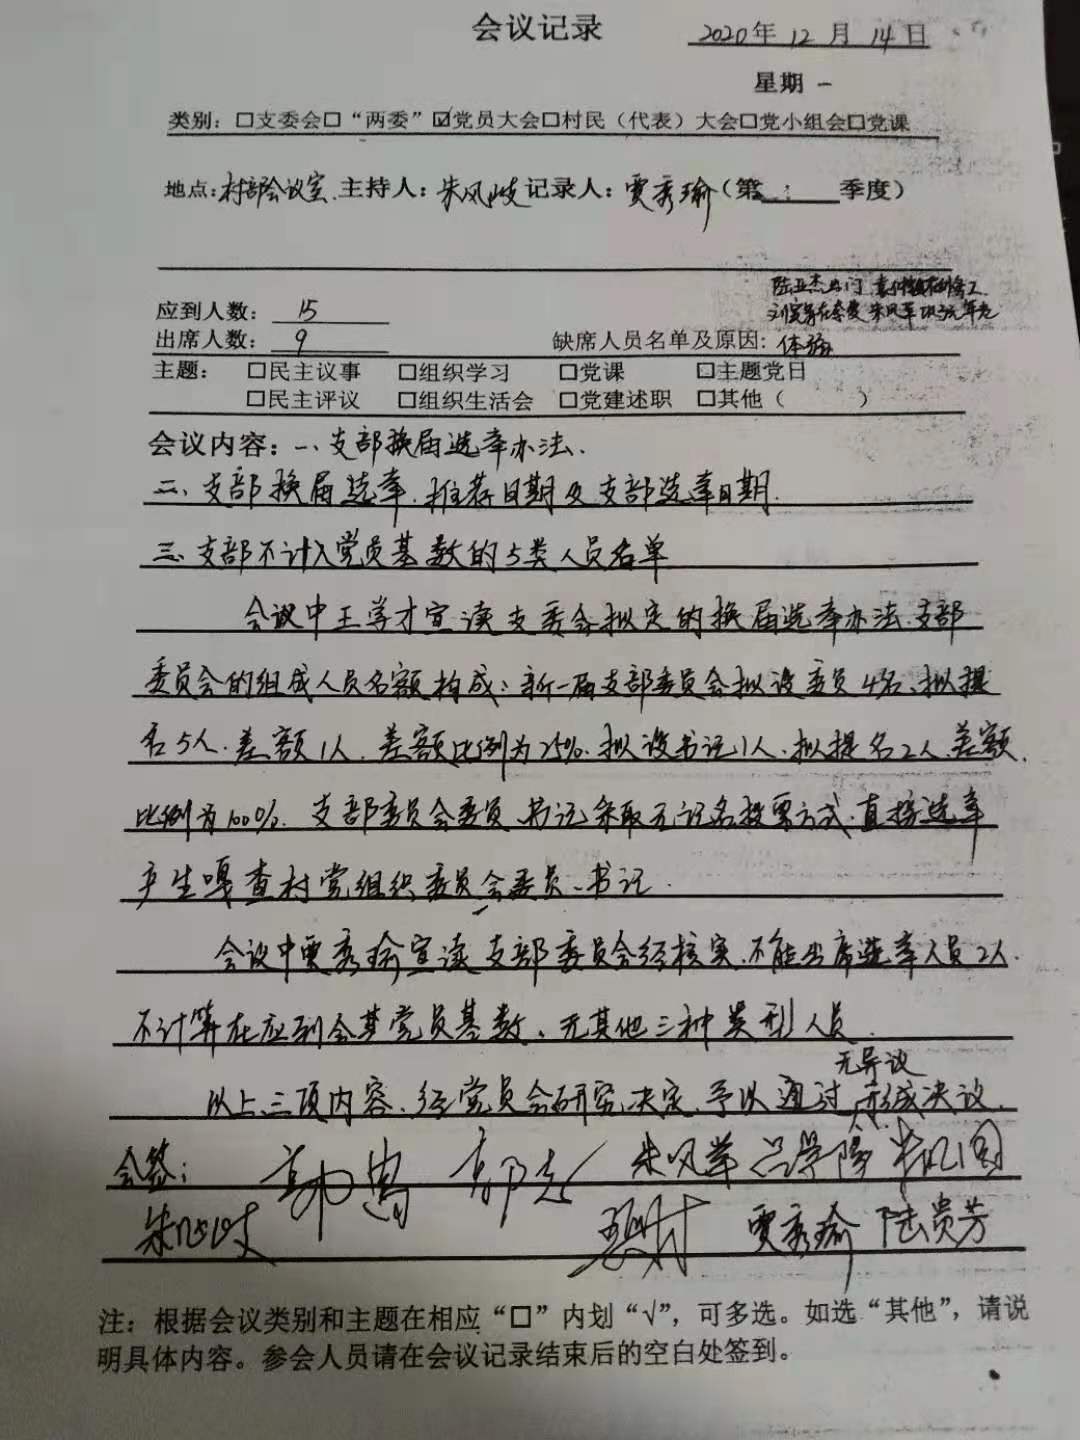 会议记录 2020年 12 月 14 日
星期 一
类别: □支委会□“两委”☑党员大会□村民(代表)大会□党小组会□党课
地点:村部会议室 主持人:朱凤岐 记录人:贾秀瑜(第 季度)
应到人数: 15
出席人数: 9 缺席人员名单及原因: 体弱
主题: □民主议事 □组织学习 □党课 □主题党日
□民主评议 □组织生活会 □党建述职 □其他( )
会议内容:一、支部换届选举办法.
二、支部换届选举.推荐日期及支部选举日期.
三.支部不计入党员基数的5类人员名单
会议中王学才宣读支委会拟定的换届选举办法.支部
委员会的组成人员名额构成:新一届支部委员会拟设委员4名、拟提
名5人.差额1人.差额比例为25%.拟设书记1人.拟提名2人.差额
比例为100%.支部委员会委员、书记采取无记名投票方式.直接选举
产生嘎查村党组织委员会委员、书记.
会议中贾秀瑜宣读支部委员会经核实.不能出席选举人员2人.
不计算在应到会党员基数、无其他三种类型人员.
以上三项内容.经党员会研究决定.予以通过 无异议 形成决议.
会签: 朱凤军 吕学 
朱凤岐 贾秀瑜 陆贵芳
注:根据会议类别和主题在相应“□”内划“√”,可多选。如选“其他”,请说
明具体内容。参会人员请在会议记录结束后的空白处签到。